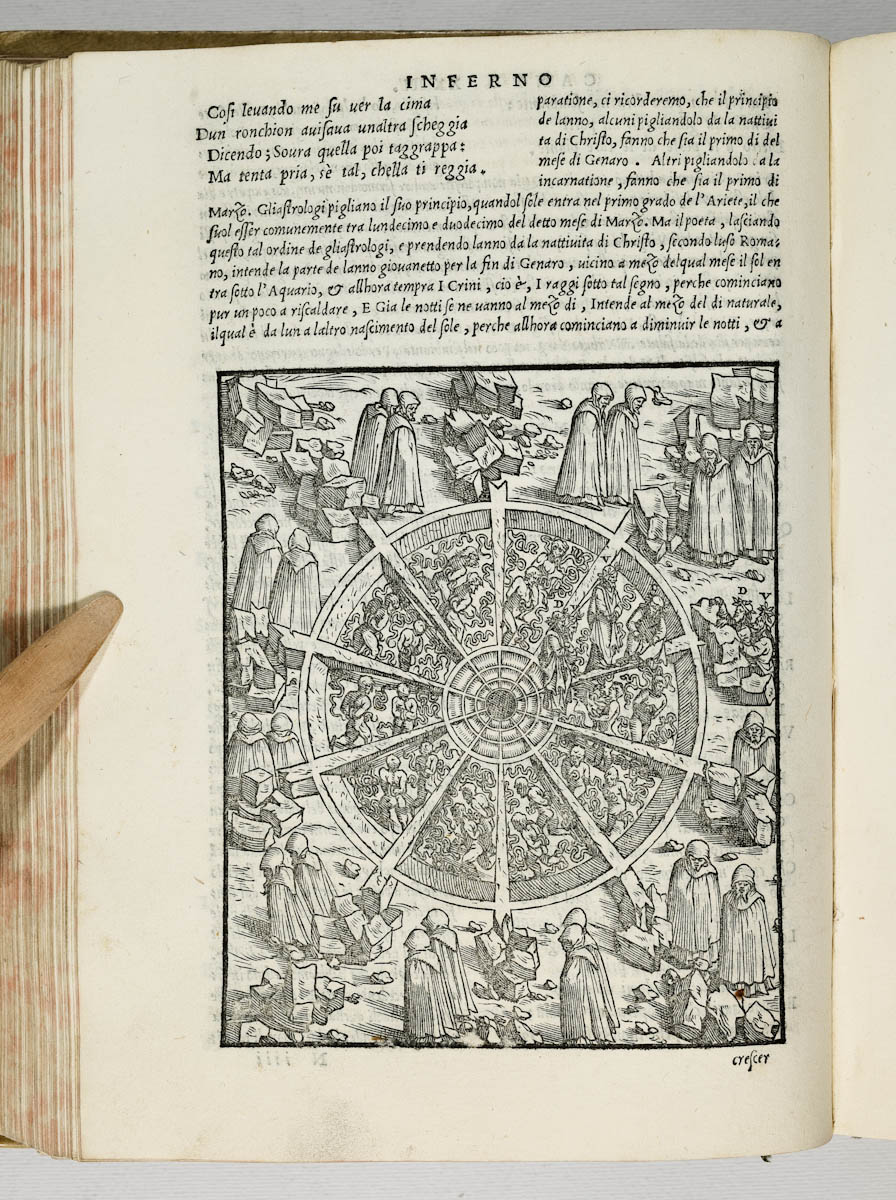 INFERNO
Cosi levando me su ver la cima
Dun ronchion avisava unaltra scheggia
Dicendo; Soura quella poi taggrappa:
Ma tenta pria, sè tal, chella ti reggia.
paratione, ci ricorderemo, che il principio
de lanno, alcuni pigliandolo da la nattiui
ta di Christo, fanno che sia il primo di del
mese di Genaro. Altri pigliandolo da la
incarnatione, fanno che sia il primo di
Marzo. Gliastrologi pigliano il suo principio, quandol sole entra nel primo grado de l'Ariete, il che
suol esser comunemente tra lundecimo e duodecimo del detto mese di Marzo. Ma il poeta, lasciando
questo tal ordine de gliastrologi, e prendendo lanno da la nattiuita di Christo, secondo luso Roma-
no, intende la parte de lanno giovanetto per la fin di Genaro, vicino a mezo delqual mese il sol en
tra sotto l'Aquario, & allhora tempra I Crini, cio è, I raggi sotto tal segno, perche cominciano
pur un poco a riscaldare, E Gia le notti se ne vanno al mezo di, Intende al mezo del di naturale,
ilqual è da lun a laltro nascimento del sole, perche allhora cominciano a diminuir le notti, & a
D V
D V
crescer